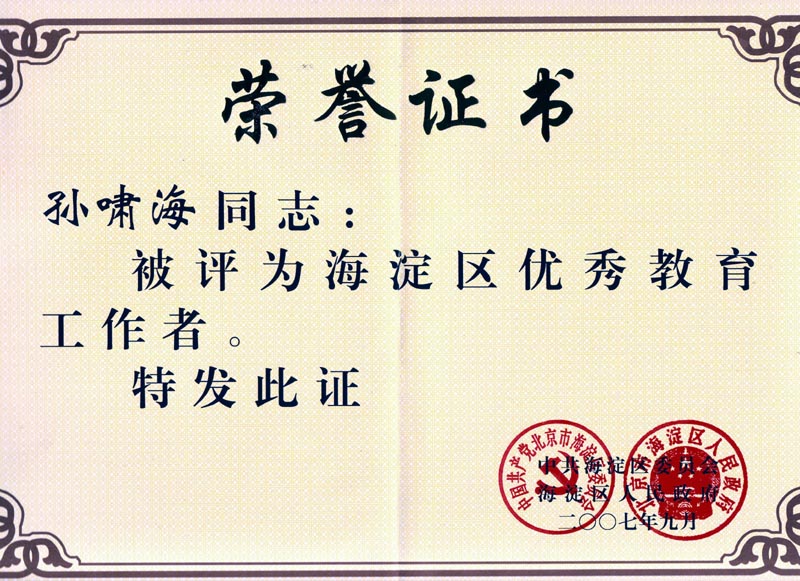 荣誉证书
孙啸海同志：
被评为海淀区优秀教育
工作者。
特发此证
中国共产党北京市海淀区委员会
北京市海淀区人民政府
中共海淀区委员会
海淀区人民政府
二〇〇七年九月